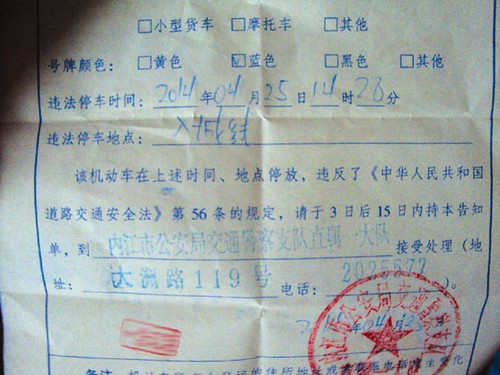 □小型货车 □摩托车 □其他
号牌颜色: □黄色 ☑蓝色 □黑色 □其他
违法停车时间: 2014 年 04 月 25 日 14 时 28 分
违法停车地点:
该机动车在上述时间、地点停放,违反了《中华人民共和国
道路交通安全法》第 56 条的规定,请于 3 日后 15 日内持本告知
单,到 内江市公安局交通警察支队直属一大队 接受处理(地
址: 大洲路119号 电话: 2025677 )。
04 月